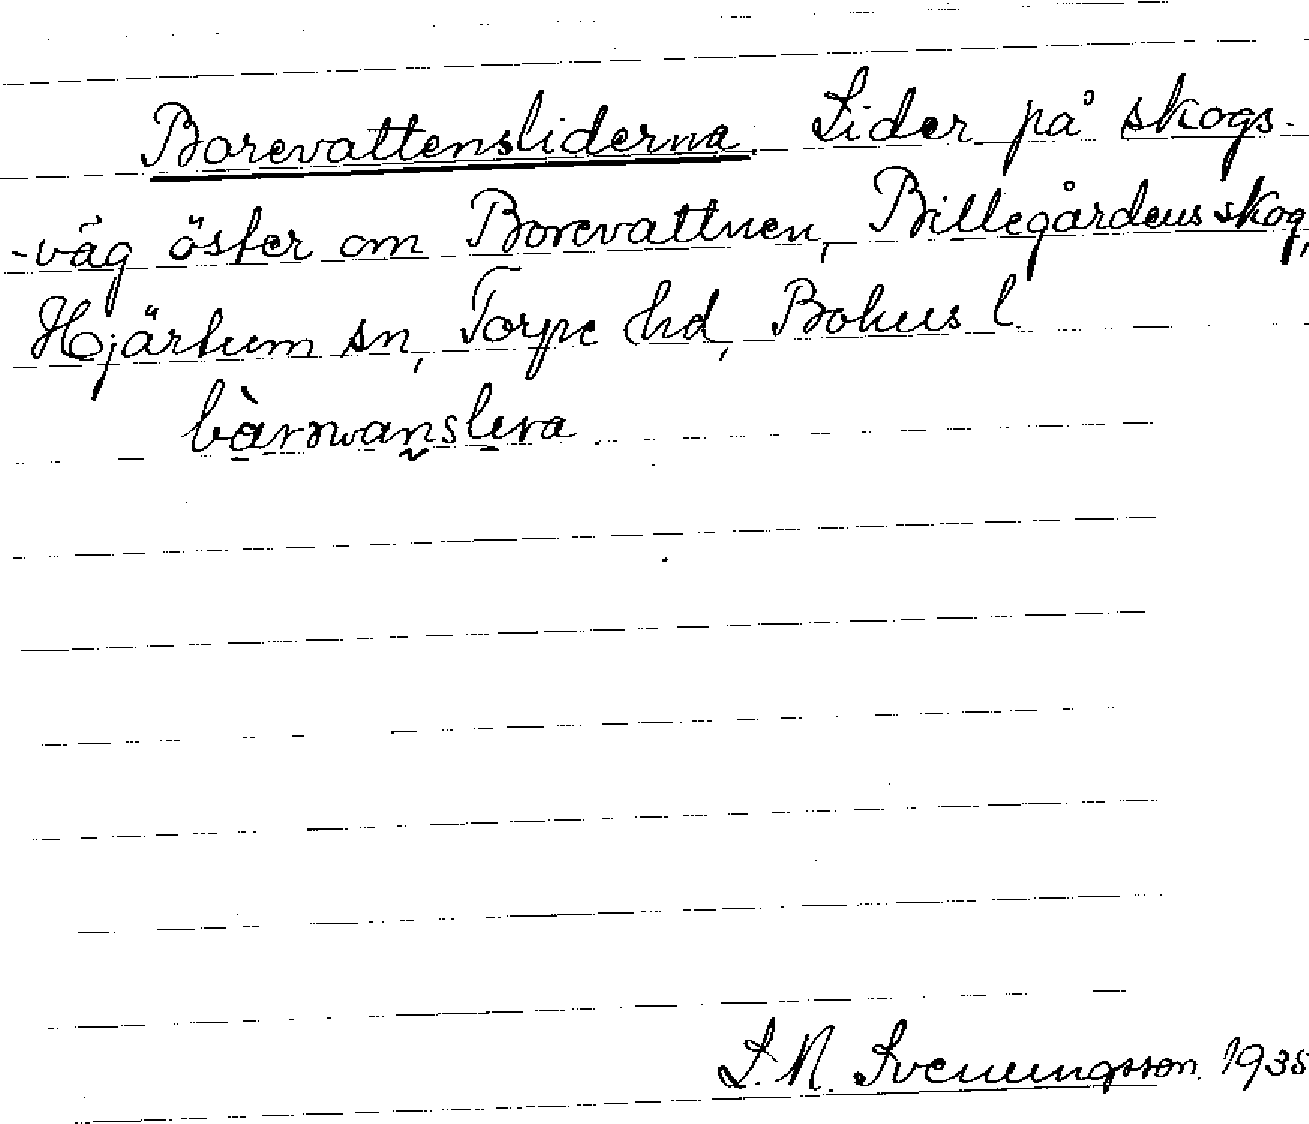 Borevattensliderna. Lider på skogs-
-väg öster om Borevattnen, Billegårdens skog,
Hjärtum sn, Torpe hd, Bohus l.
bàrwanslera
S. N. Svenungsson. 1935